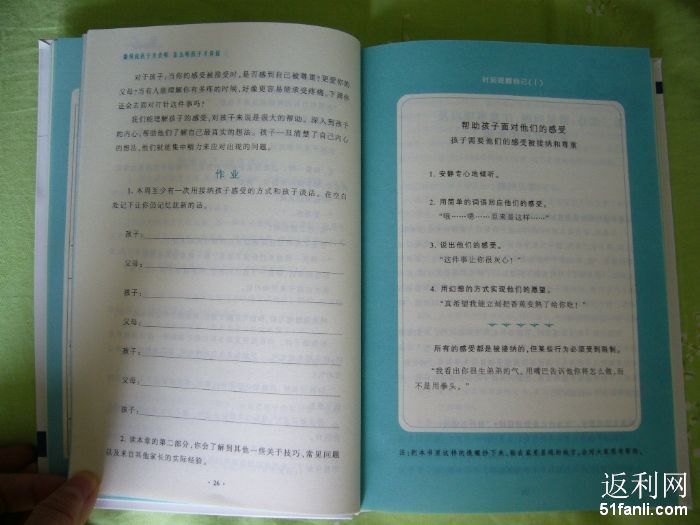 如何说孩子才会听 怎么听孩子才肯说
对于孩子:当你的感受被接受时,是否感到自己被尊重?更爱你的
父母?当有人能理解你有多疼的时候,好像更容易能承受疼痛,下
还会去面对打针这件事吗?
我们能理解孩子的感受,对孩子来说是很大的帮助。深入到孩子
的内心,帮助他们了解自己最真实的想法。孩子一旦清楚了自己内心
的想法,他们就能集中精力来应对出现的问题。
作业
1. 本周至少有一次用接纳孩子感受的方式和孩子谈话。在空白
处记下让你仍记忆犹新的话。
孩子:
父母:
孩子:
父母:
孩子:
父母:
孩子:
2. 读本章的第二部分,你会了解到其他一些关于技巧、常见问题
以及来自其他家长的实际经验。
· 26 ·
时刻提醒自己(Ⅰ)
帮助孩子面对他们的感受
孩子需要他们的感受被接纳和尊重
1. 安静专心地倾听。
2. 用简单的词语回应他们的感受。
“哦……嗯……原来是这样……”
3. 说出他们的感受。
“这件事让你很灰心!”
4. 用幻想的方式实现他们的愿望。
“真希望我能立刻把香蕉变熟了给你吃!”
所有的感受都是被接纳的,但某些行为必须受到限制。
“我看出你很生弟弟的气。用嘴巴告诉他你将怎么做,而
不是用拳头。”
注:把本书里这样的提醒抄下来,贴在家里显眼的地方,会对大家很有帮助。
返利网
51fanli.com